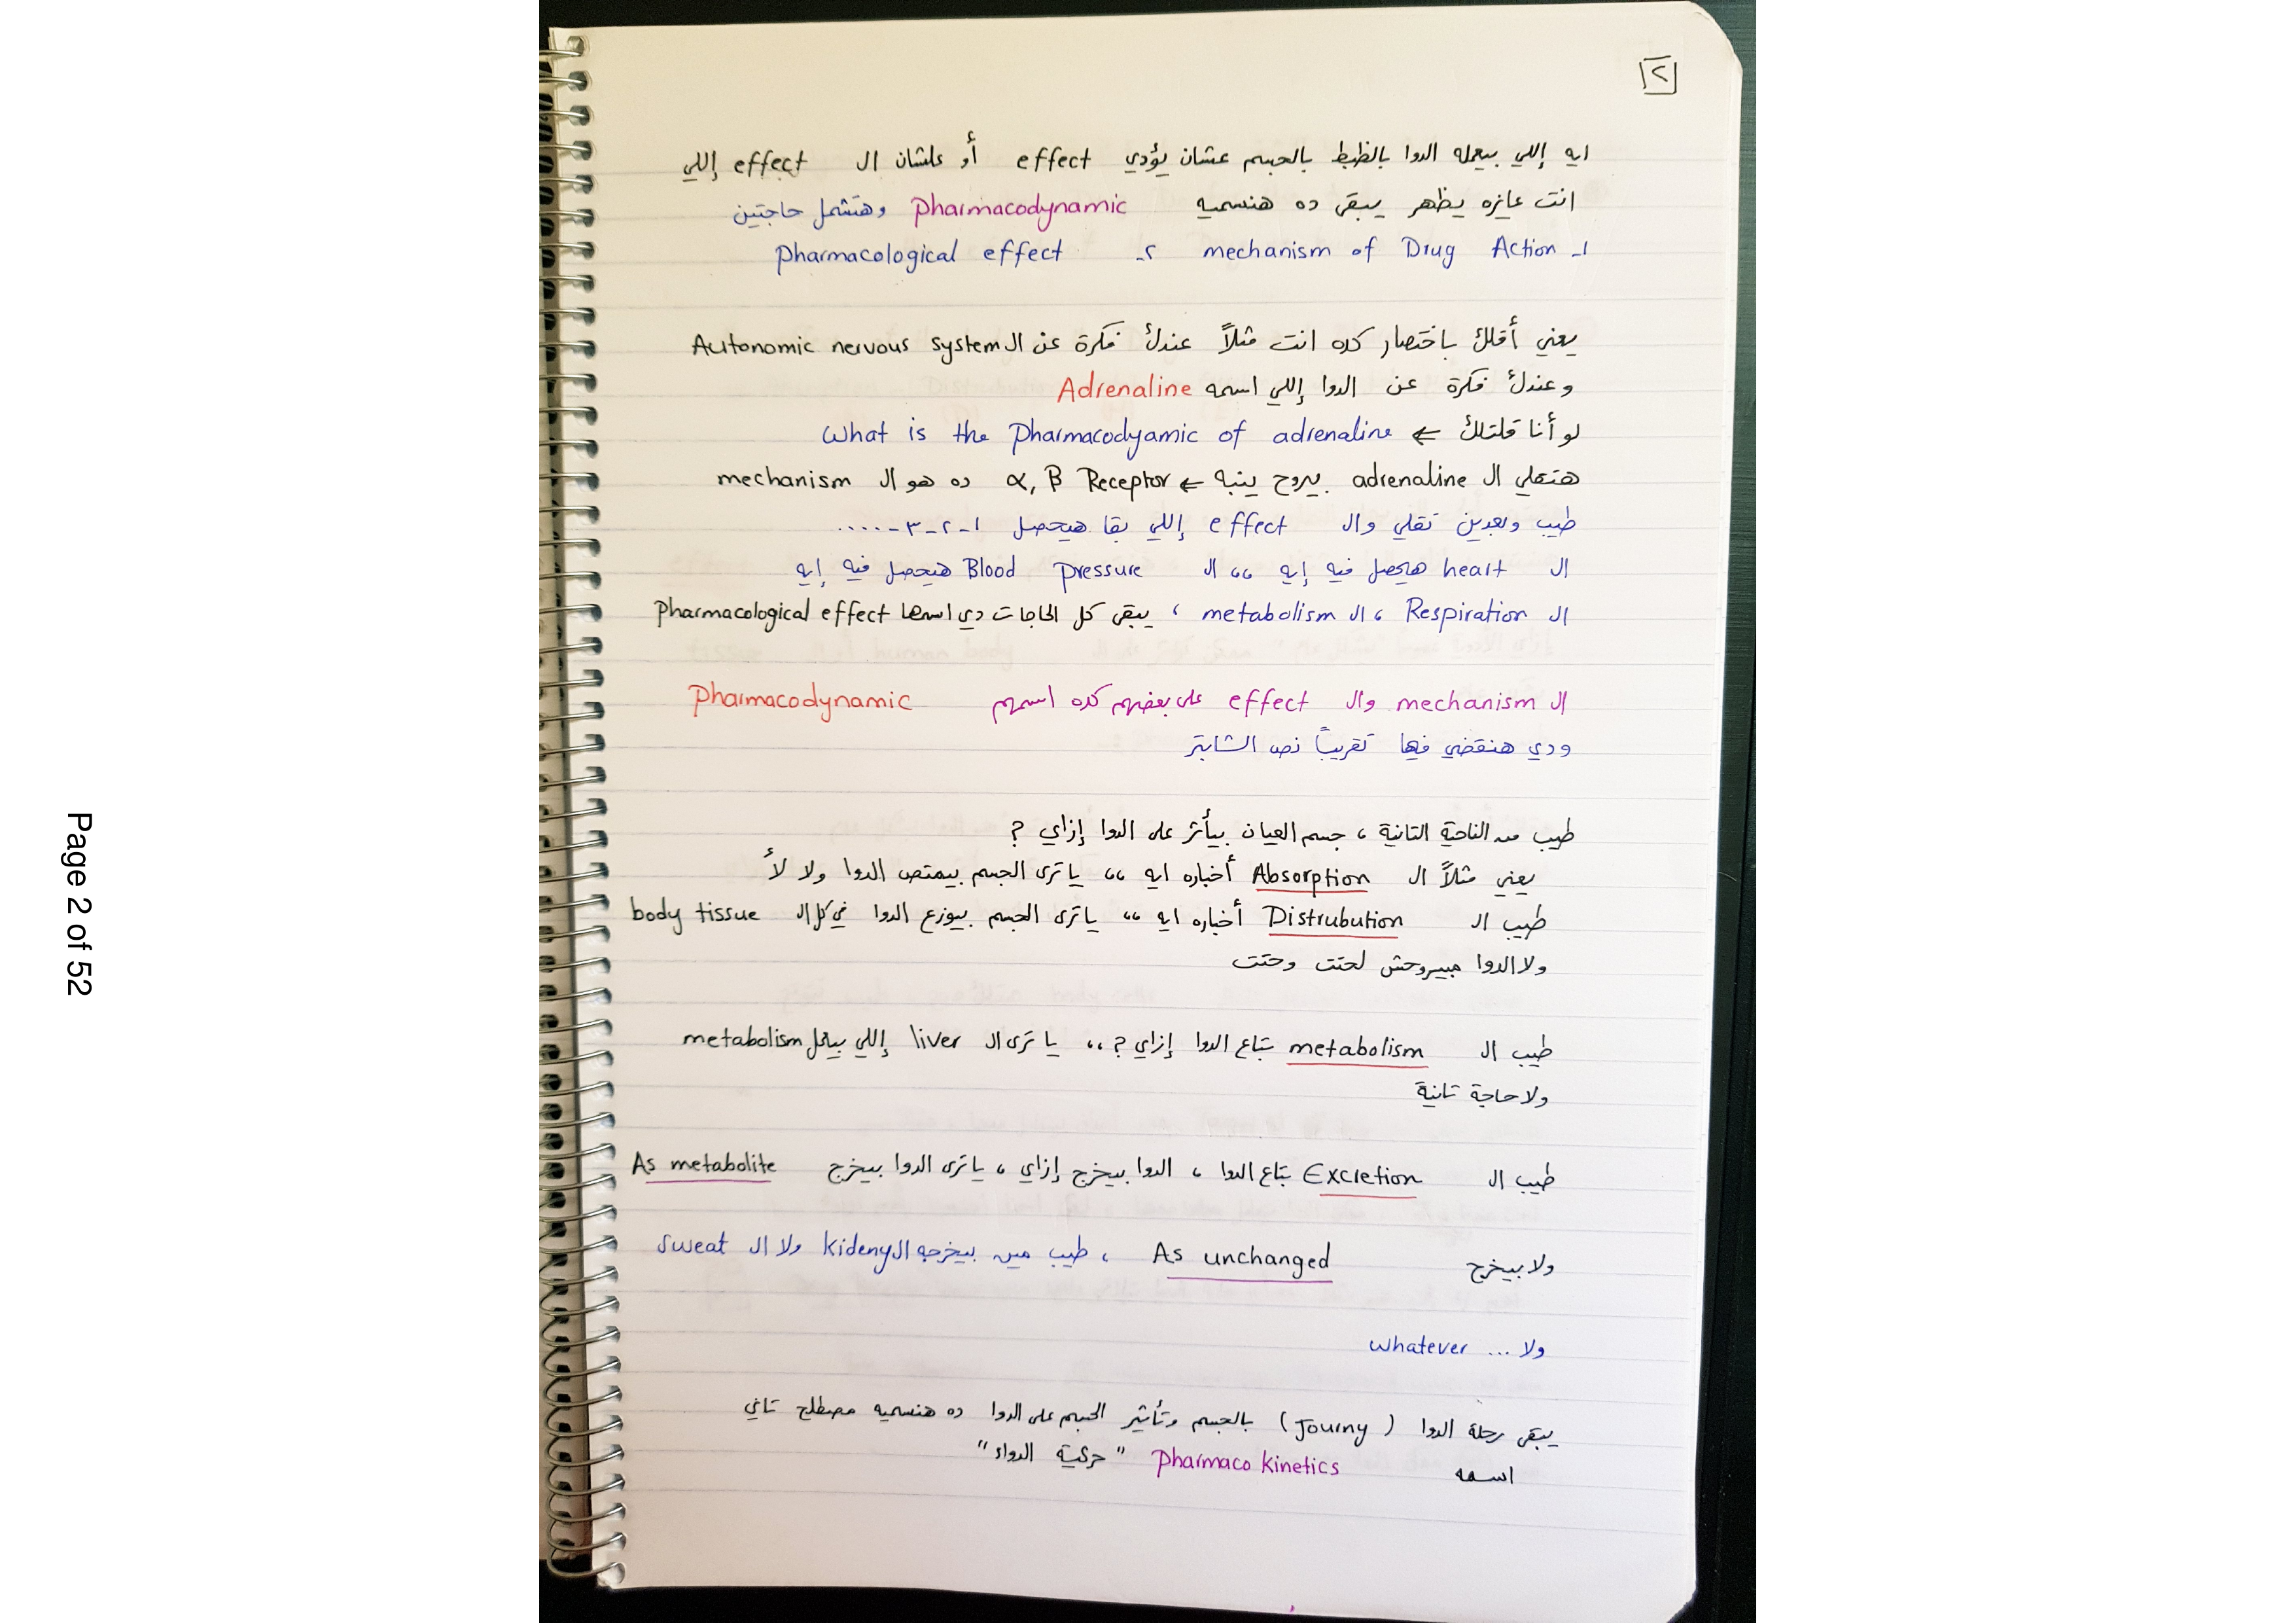 ٢
ايه إللي بيعمله الدوا بالظبط بالجسم عشان يؤدي effect أو علشان ال effect إللي
انت عايزه يظهر يبقى ده هنسميه Pharmacodynamic وهتشمل حاجتين
١- mechanism of Drug Action ٢- Pharmacological effect
يعني أقلك باختصار كده انت مثلاً عندك فكرة عن ال Autonomic nervous system
وعندك فكرة عن الدوا إللي اسمه Adrenaline
لو أنا قلتلك ← What is the Pharmacodyamic of adrenaline
هتقلي ال adrenaline بيروح ينبه ← α, β Receptor ده هو ال mechanism
طيب وبعدين تقلي وال effect إللي بقا هيحصل ١-٢-٣-.....
ال heart هيحصل فيه إيه ،، ال Blood pressure هيحصل فيه إيه
ال Respiration ، ال metabolism ، يبقى كل الحاجات دي اسمها Pharmacological effect
ال mechanism وال effect على بعضهم كده اسمهم Pharmacodynamic
ودي هنقضي فيها تقريباً نص الشابتر
طيب من الناحية التانية ، جسم العيان بيأثر على الدوا إزاي ?
يعني مثلاً ال Absorption أخباره ايه ،، يا ترى الجسم بيمتص الدوا ولا لأ
طيب ال Distrubution أخباره ايه ،، يا ترى الجسم بيوزع الدوا في كل ال body tissue
ولا الدوا مبيروحش لحتت وحتت
طيب ال metabolism بتاع الدوا إزاي ? ،، يا ترى ال liver إللي بيعمل metabolism
ولا حاجة تانية
طيب ال Excretion بتاع الدوا ، الدوا بيخرج إزاي ، يا ترى الدوا بيخرج As metabolite
ولا بيخرج As unchanged ، طيب مين بيخرجه ال kideny ولا ال sweat
ولا ... whatever
يبقى رحلة الدوا ( Journy ) بالجسم وتأثير الجسم على الدوا ده هنسميه مصطلح تاني
اسمه Pharmaco kinetics "حركية الدواء"
Page 2 of 52